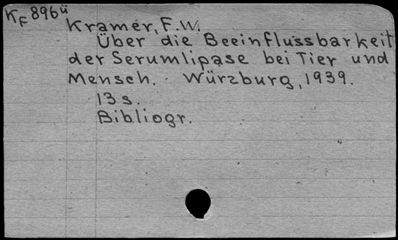 KF 896ü
Kramer, F.W.
Über die Beeinflussbarkeit
der Serumlipase bei Tier und
Mensch. Würzburg, 1939.
13 s.
Bibliogr.